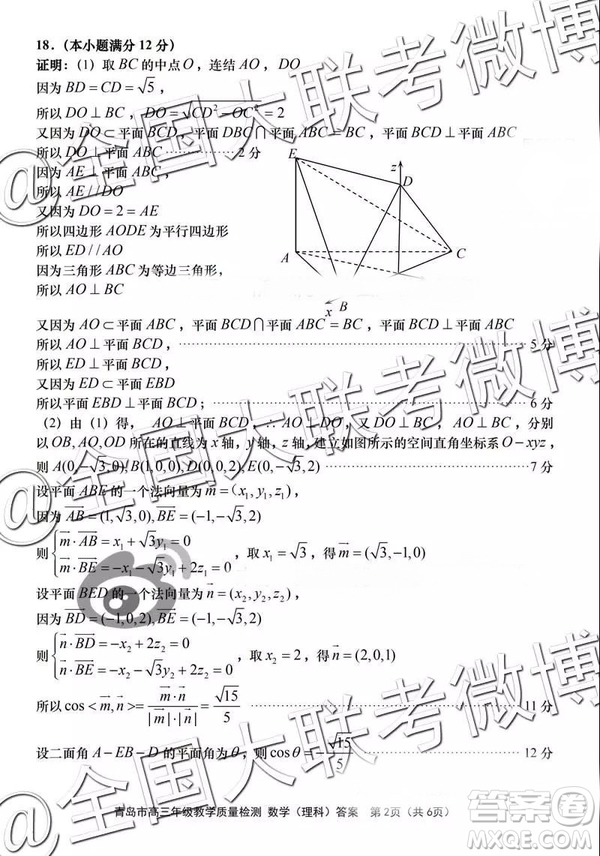 18.（本小题满分 12 分）
证明：（1）取 BC 的中点 O，连结 AO，DO
因为 BD = CD = √5，
所以 DO ⊥ BC，DO = √(CD² − OC²) = 2
又因为 DO ⊂ 平面 BCD，平面 DBC ∩ 平面 ABC = BC，
所以 DO ⊥ 平面 ABC ⋯⋯ 2 分
因为 AE ⊥ 平面 ABC，
所以 AE // DO
又因为 DO = 2 = AE
所以四边形 AODE 为平行四边形
所以 ED // AO
因为三角形 ABC 为等边三角形，
所以 AO ⊥ BC
E
z
D
A
C
x B
又因为 AO ⊂ 平面 ABC，平面 BCD ∩ 平面 ABC = BC，
所以 AO ⊥ 平面 BCD ⋯⋯ 5 分
所以 ED ⊥ 平面 BCD，
又因为 ED ⊂ 平面 EBD
所以平面 EBD ⊥ 平面 BCD； ⋯⋯ 6 分
（2）由（1）得，AO ⊥ 平面 BCD ∴ AO ⊥ DO，又 DO ⊥ BC，AO ⊥ BC，分别
以 OB, AO, OD 所在的直线为 x 轴，y 轴，z 轴，建立如图所示的空间直角坐标系 O − xyz，
则 A(0, −√3, 0), B(1,0,0), D(0,0,2), E(0, −√3, 2) ⋯⋯ 7 分
设平面 ABE 的一个法向量为 m = (x₁, y₁, z₁)，
因为 AB = (1, √3, 0), BE = (−1, −√3, 2)
则 { m · AB = x₁ + √3y₁ = 0
m · BE = −x₁ − √3y₁ + 2z₁ = 0
，取 x₁ = √3，得 m = (√3, −1, 0)
设平面 BED 的一个法向量为 n = (x₂, y₂, z₂)，
因为 BD = (−1, 0, 2), BE = (−1, −√3, 2)
则 { n · BD = −x₂ + 2z₂ = 0
n · BE = −x₂ − √3y₂ + 2z₂ = 0
，取 x₂ = 2，得 n = (2, 0, 1)
所以 cos < m, n >= m · n / |m| · |n| = √15 / 5 ⋯⋯ 11 分
设二面角 A − EB − D 的平面角为 θ，则 cosθ = − √15 / 5 ⋯⋯ 12 分
青岛市高三年级教学质量检测 数学（理科）答案 第 2页（共 6页）
@全国大联考微博
@全国大联考微博
@全国大联考微博
答案圈
MXQE.COM